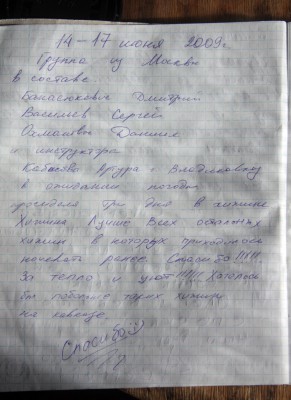 14–17 июня 2009г
Группа из Москвы
в составе
Дмитрий
Васильев Сергей
и инструктора
Артура г. Владикавказ
в ожидании погоды
просидела три дня в хижине
Хижина лучше всех остальных
хижин в которых приходилось
ночевать ранее. Спасибо!!!!!
За тепло и уют!!!!!! Хотелось
бы побольше таких хижин
на кавказе.
Спасибо!